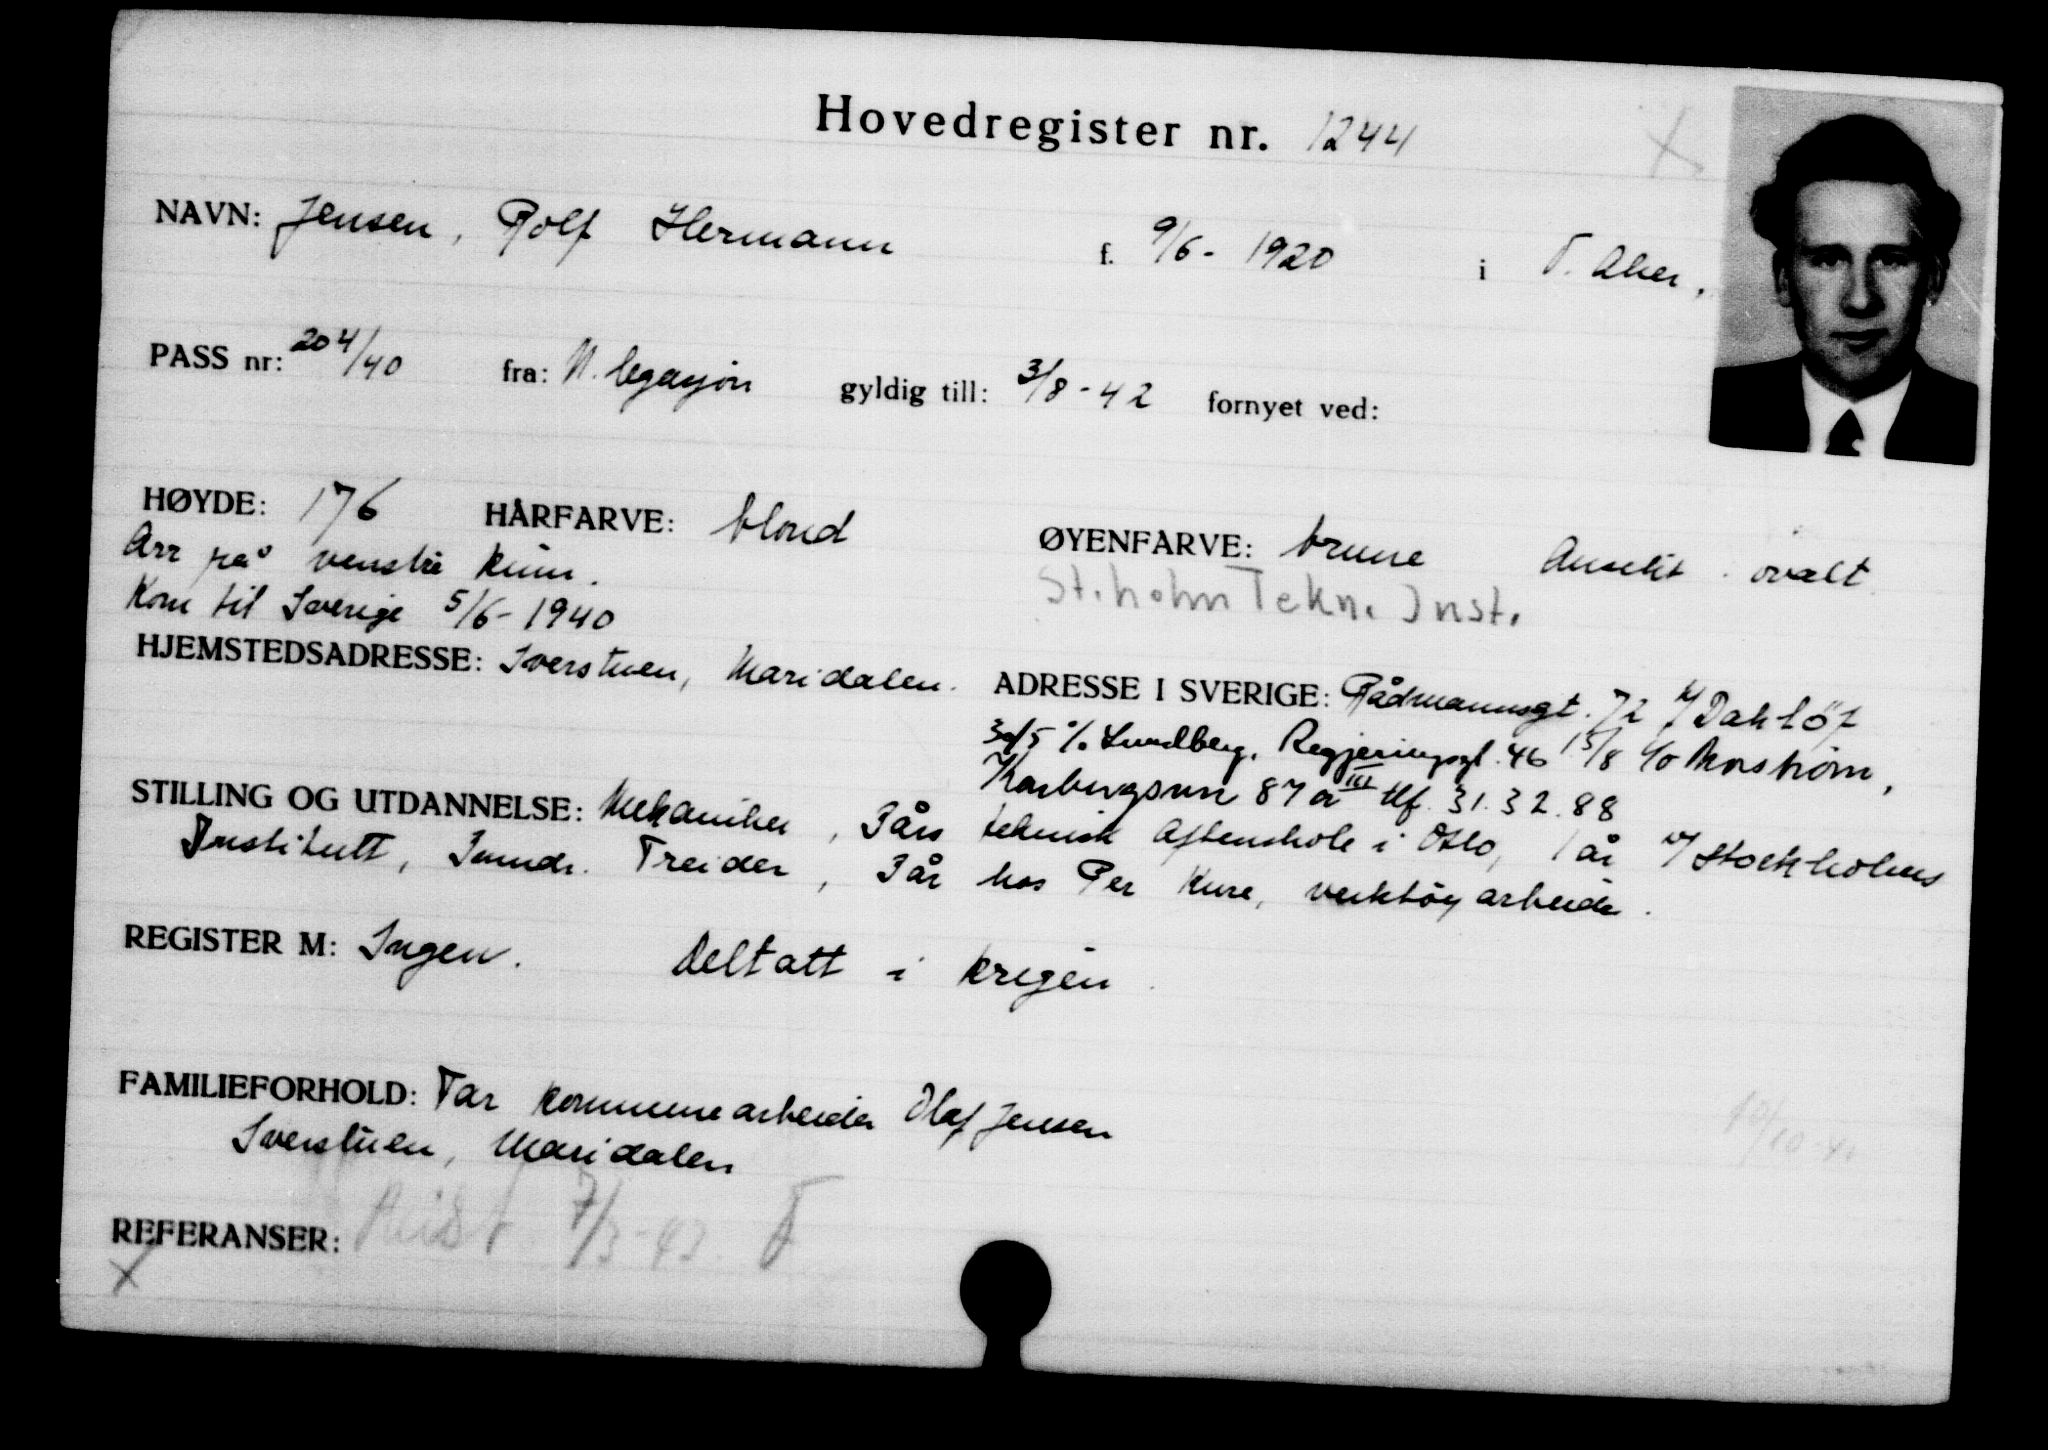 Hovedregister nr. 1244
NAVN: Jensen, Rolf Hermann f. 9/6 - 1920 i V. Aker.
PASS nr: 204/40 fra: N. legasjon gyldig till: 3/8 - 42 fornyet ved:
HØYDE: 176 HÅRFARVE: blond ØYENFARVE: brune Ansikt: ovalt
Arr på venstre kinn.
St.holm Tekn. Inst.
Kom til Sverige 5/6 - 1940
HJEMSTEDSADRESSE: Sverstuen, Maridalen. ADRESSE I SVERIGE: Rådmannsgt. 72 Dahlöf
30/5 % Lundberg, Regjeringsgt. 46 15/8 c/o
87 a III tlf. 31.32.88
STILLING OG UTDANNELSE: Mekaniker, 3 års teknisk aftenskole i Oslo, 1 år v/ Stockholms
Institutt, Treider, 3 år hos Per Kure, verktøyarbeide.
REGISTER M: Ingen. Deltatt i krigen.
FAMILIEFORHOLD: Far kommunearbeider Olaf Jensen
Sverstuen, Maridalen
REFERANSER: Reist 7/3-43.
X